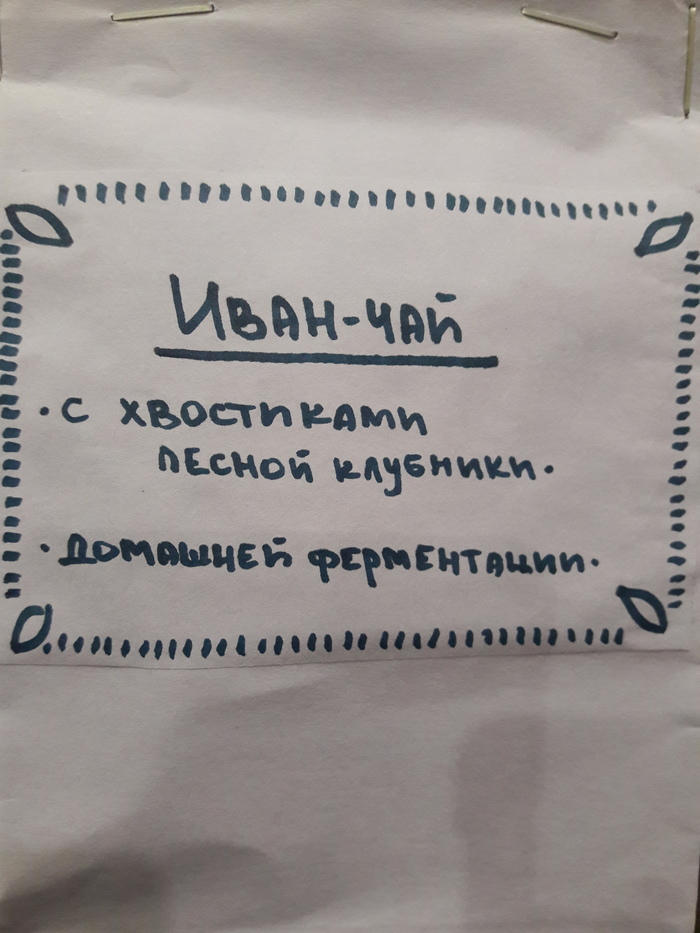 Иван-чай
• с хвостиками
лесной клубники.
• домашней ферментации.